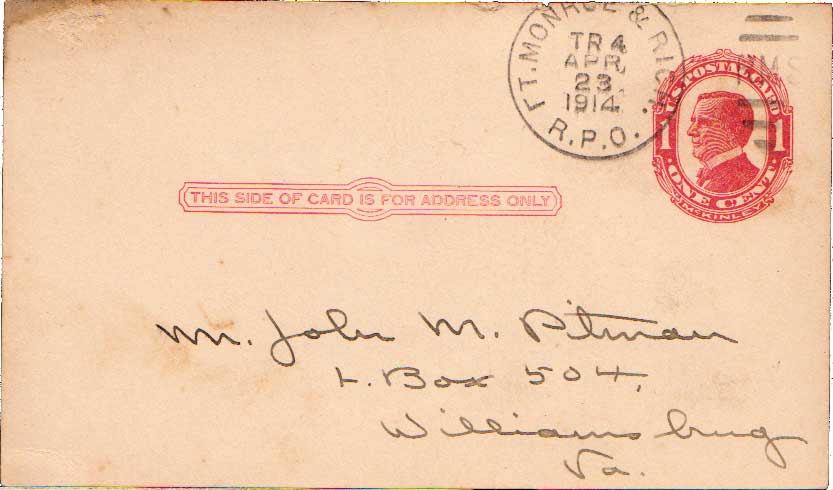 FT. MONROE & RICH.
TR 4
APR
23
1914
R.P.O.
RMS
U.S. POSTAL CARD
1 1
ONE CENT
McKINLEY
THIS SIDE OF CARD IS FOR ADDRESS ONLY
Mr. John M. Pitman
L. Box 504,
Williamsburg
Va.